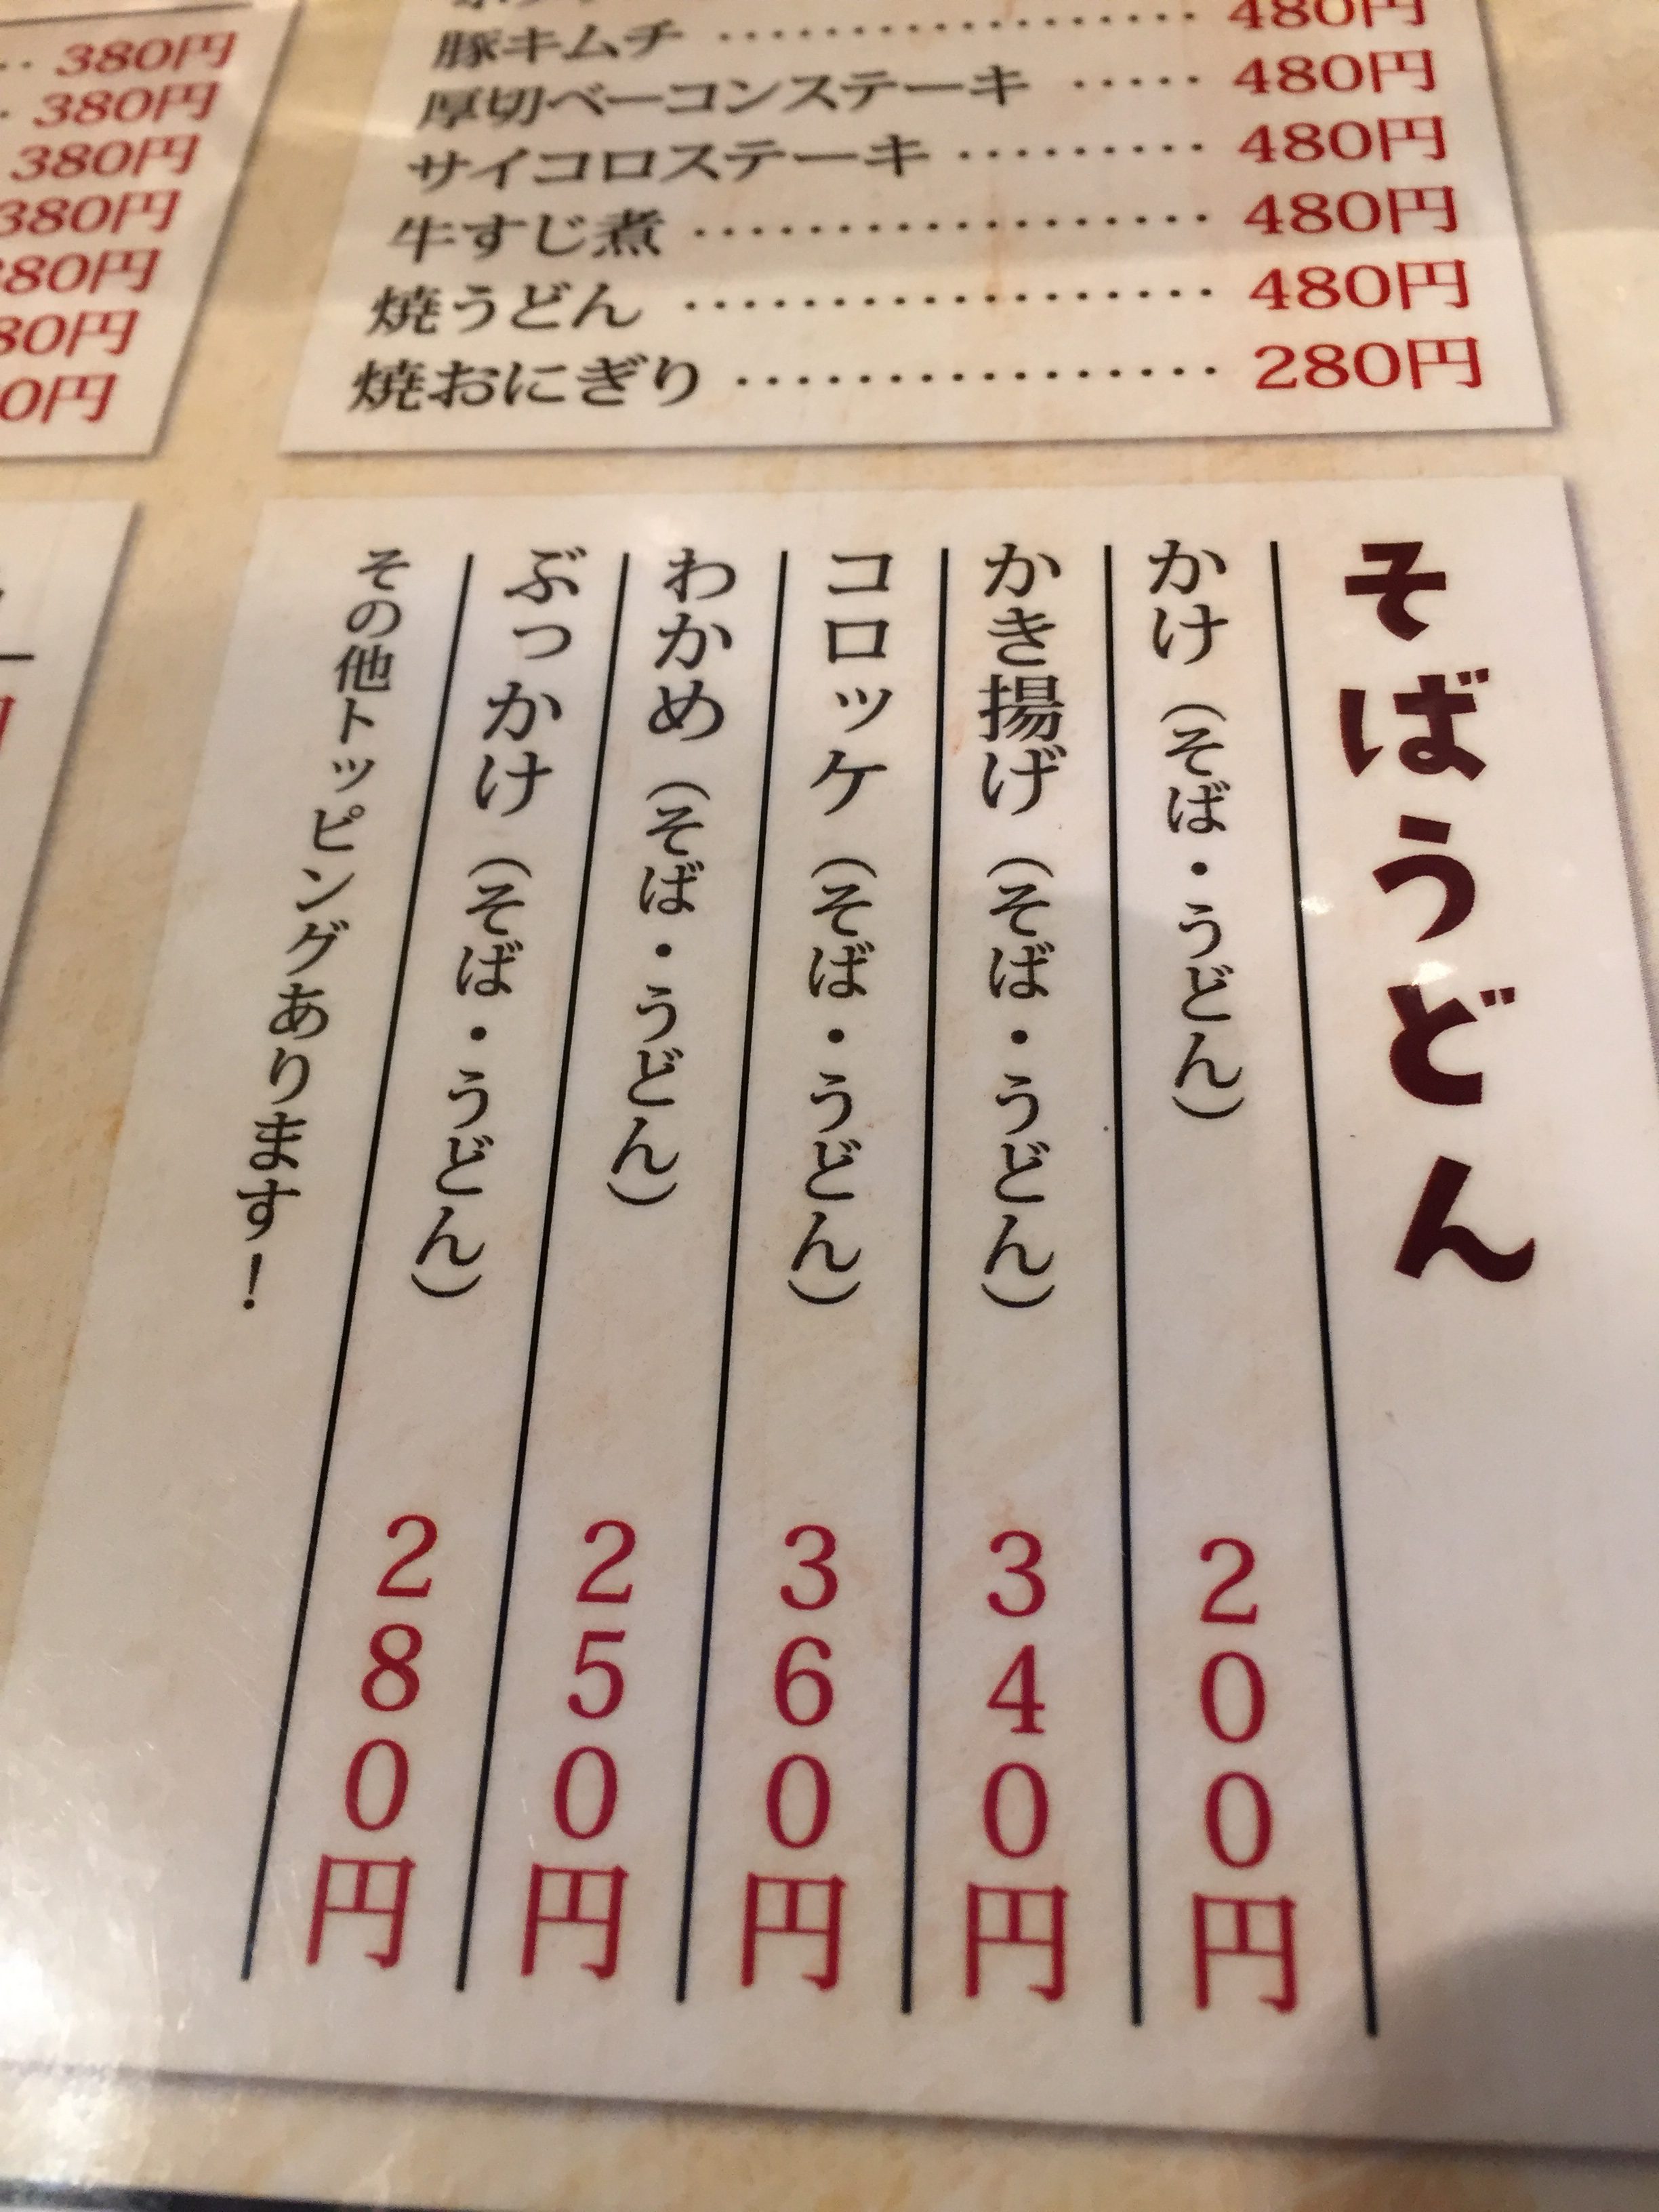 380円
380円
380円
380円
480円
豚キムチ ………………… 480円
厚切ベーコンステーキ …… 480円
サイコロステーキ ………… 480円
牛すじ煮 ………………… 480円
焼うどん ………………… 480円
焼おにぎり ……………… 280円
そばうどん
かけ（そば・うどん） 200円
かき揚げ（そば・うどん） 340円
コロッケ（そば・うどん） 360円
わかめ（そば・うどん） 250円
ぶっかけ（そば・うどん） 280円
その他トッピングあります！